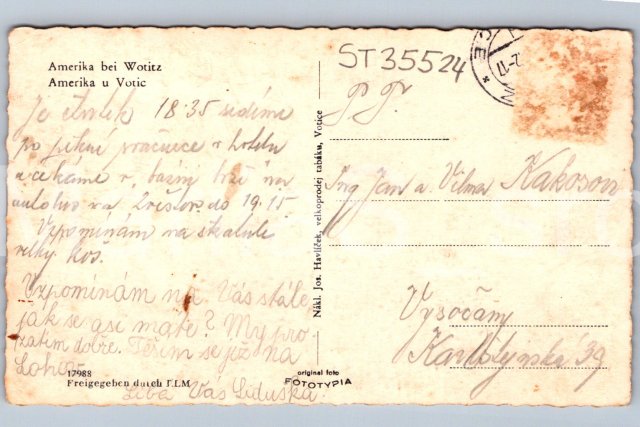 Amerika bei Wotitz
Amerika u Votic
Je čtvrtek 18.35 sedíme
po pěkné procházce v hotelu
a čekáme v
autobus na do 19.15.
Vzpomínám na
velký koš.
Vzpomínám na Vás stále,
jak se asi máte? My pro
zatím dobře. Těším se již na
Líbá Vás Liduška.
17988
Freigegeben durch FLM
original foto
FOTOTYPIA
Nákl. Jos. Havlíček, velkoprodej tabáku, Votice
ST35524
Ing Jan a Vilma Kakosovi
Vysočany
Karlštýnská 39